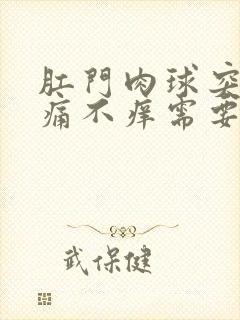 肛門肉球突
痛不痒需要
武保健